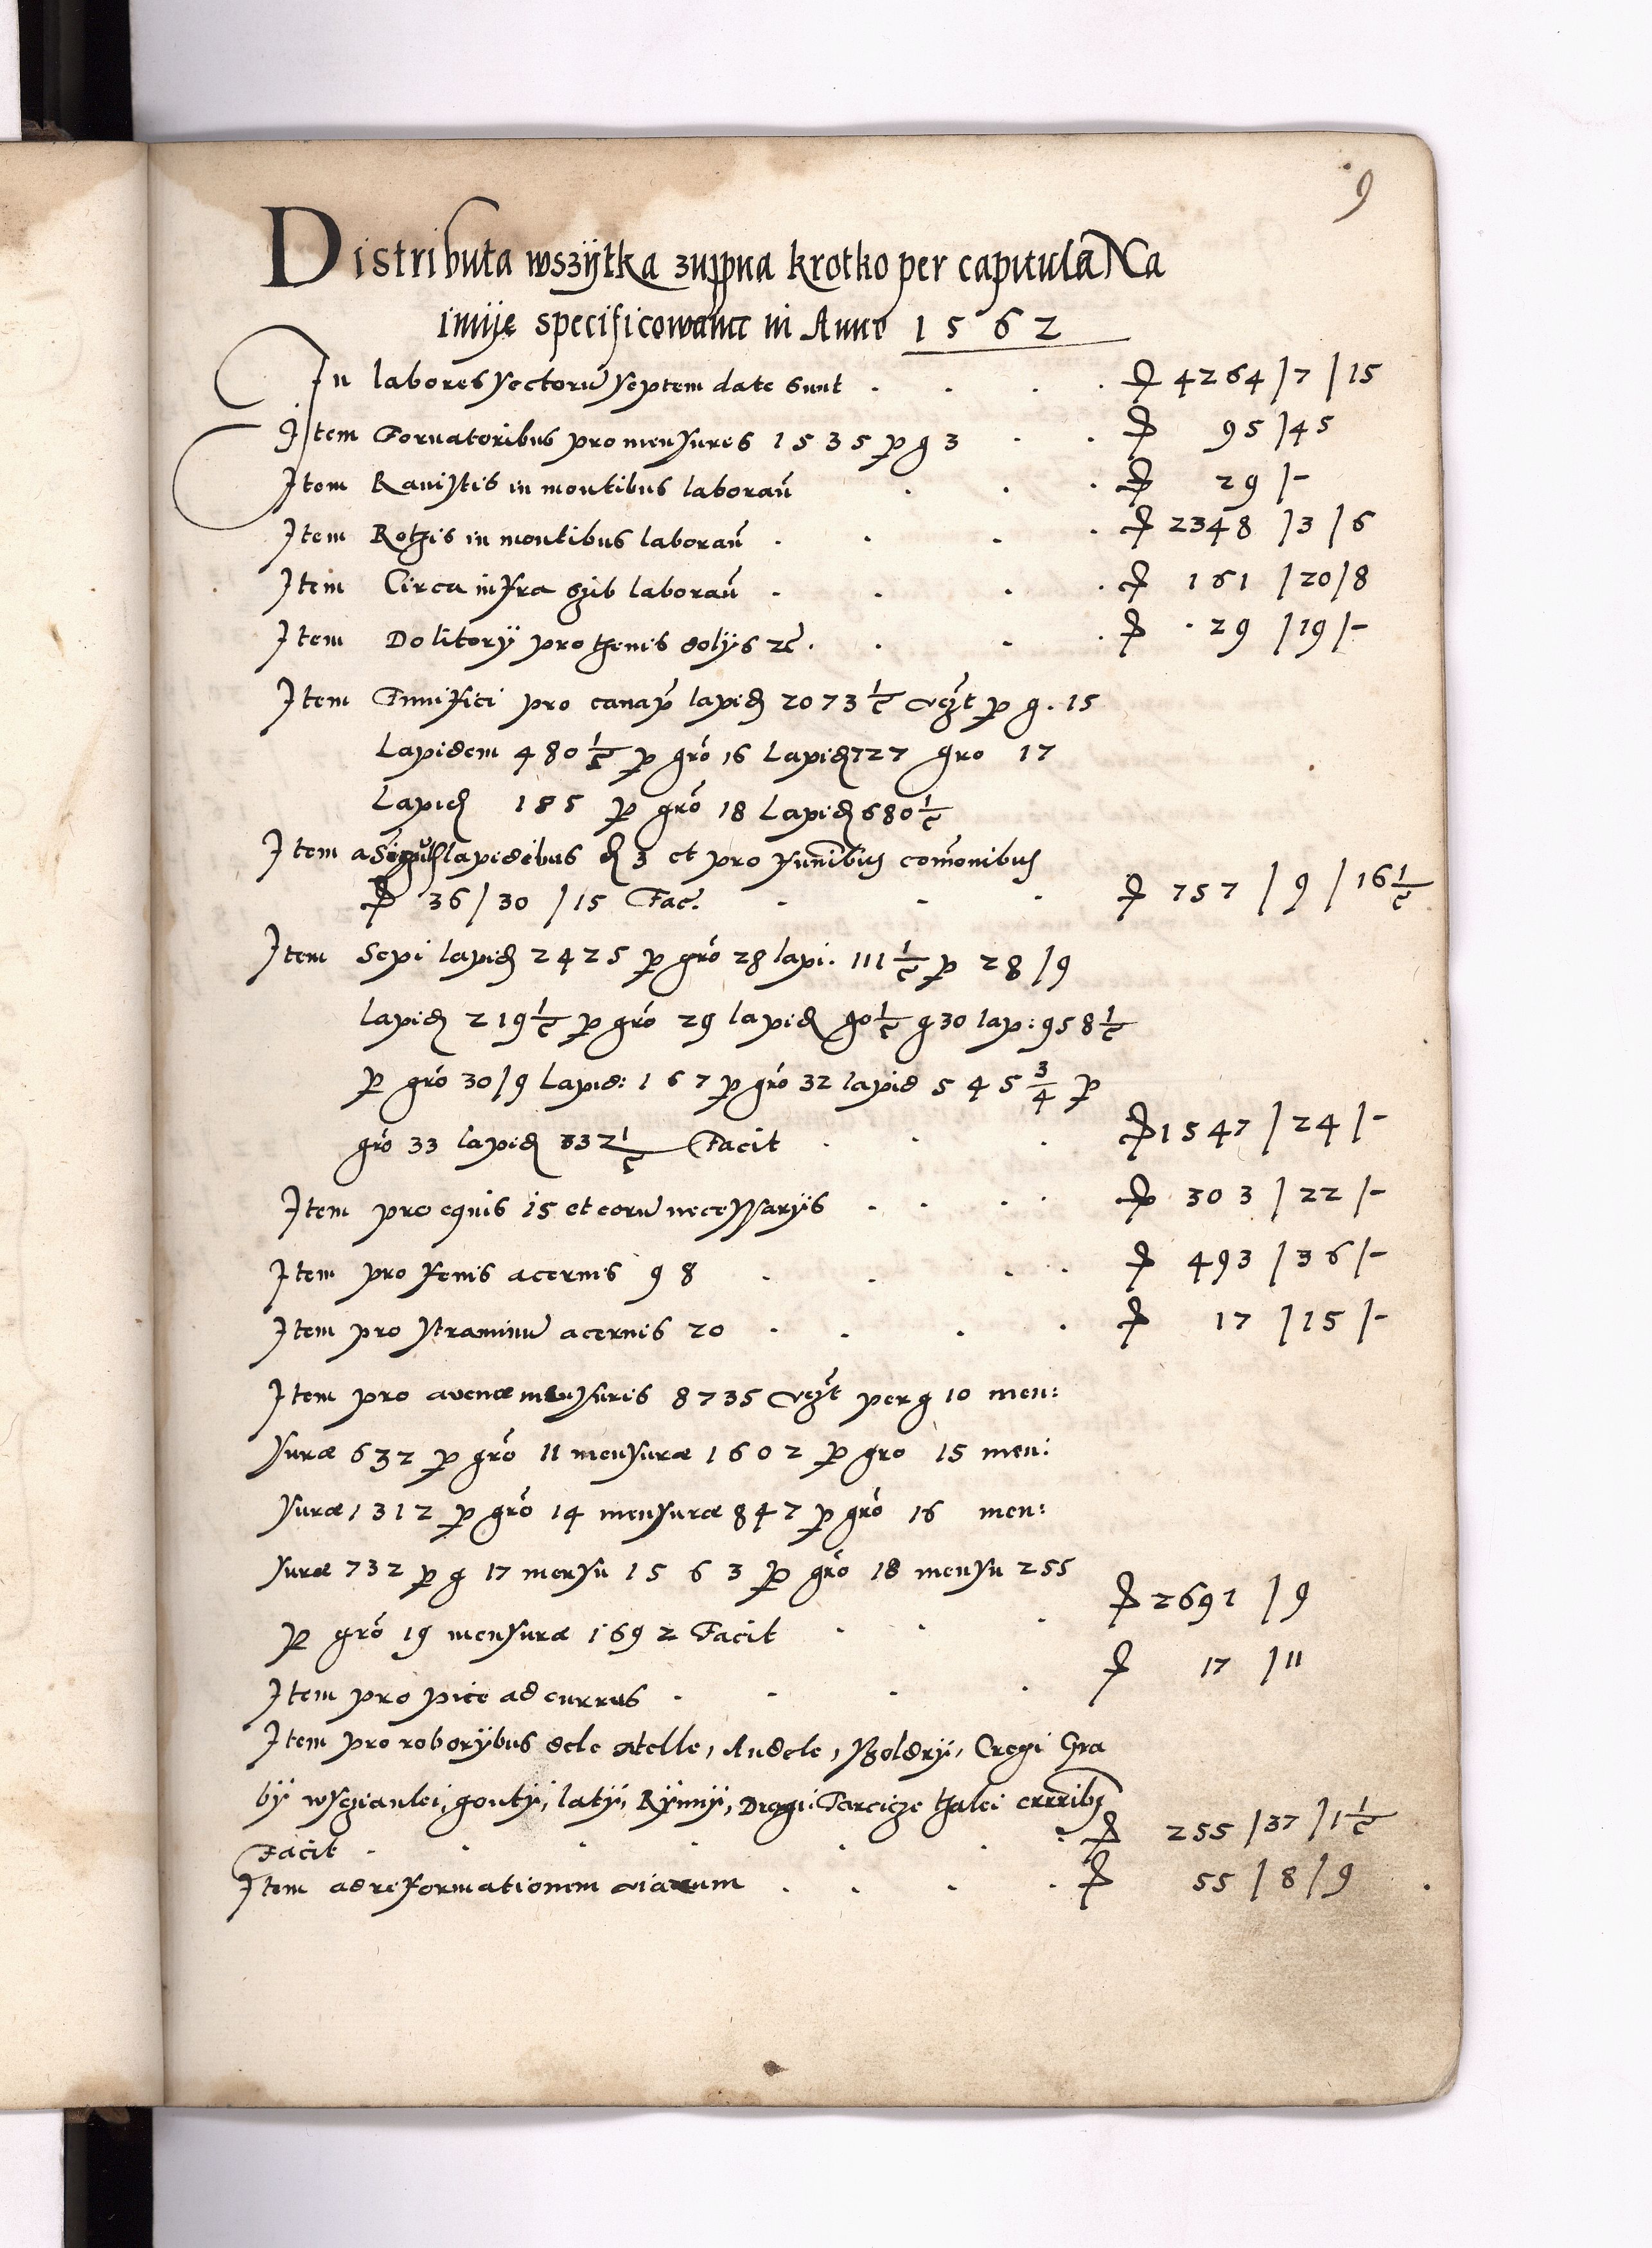 9
Distributa wszÿtka zuppna krotko per capitula Na
imije specificowanẽ in Anno 1562
In labores sectorũ septem date sunt . . . . 4264 / 7 / 15
Item Tornatoribus pro mensures 1535 p g 3 . . 95 / 45
Item Ranistis in montibus laborañ . . . 29 / -
Item Rotzis in montibus laborañ . . . . 2348 / 3 / 6
Item Circa infra szib laborañ . . . . 161 / 20 / 8
Item Dolitorÿ pro tzenis dolÿs zc̃ . . . . 29 / 19 / -
Item Funifici pro canap̃ lapid 2073 1/2 vczt p g. 15
Lapidem 480 1/2 p grõ 16 Lapid 727 gro 17
Lapid 185 p grõ 18 Lapid 680 1/2
Item a lapidibus d 3 et pro funibus comonibus
36 / 30 / 15 Fac. . . . 757 / 9 / 16 1/2
Item Sepi lapid 2425 p grõ 28 lapi. 111 1/2 p 28 / 9
lapid 219 1/2 p grõ 29 lapid 90 1/2 g 30 lap: 958 1/2
p grõ 30 / 9 Lapid: 167 p grõ 32 lapid 545 3/4 p
grõ 33 lapid 332 1/2 Facit . . . 1547 / 24 / -
Item pro equis 15 et eorũ necessarÿs . . . . 303 / 22 / -
Item pro fenis acernis 98 . . . . 493 / 36 / -
Item pro straminũ acernis 20 . . . . 17 / 15 / -
Item pro avenæ mensuris 8735 vczt per g 10 men:
suræ 632 p grõ 11 mensuræ 1602 p gro 15 men:
suræ 1312 p grõ 14 mensuræ 847 p grõ 16 men:
suræ 732 p g 17 mensu 1563 p grõ 18 mensu 255
p grõ 19 mensuræ 1692 Facit . . . 2692 / 9
Item pro pice ad currus . . . . 17 / 11
Item pro roborÿbus dele stelle, Andele, Szoldrÿ, Cregi Gra
bÿ wsczianlei, gontÿ, latÿ, Rÿnnÿ, Dragi Tarcicze tzalei
Facit . . . . . 255 / 37 / 1 1/2
Item ad reformationem viarum . . . . 55 / 8 / 9